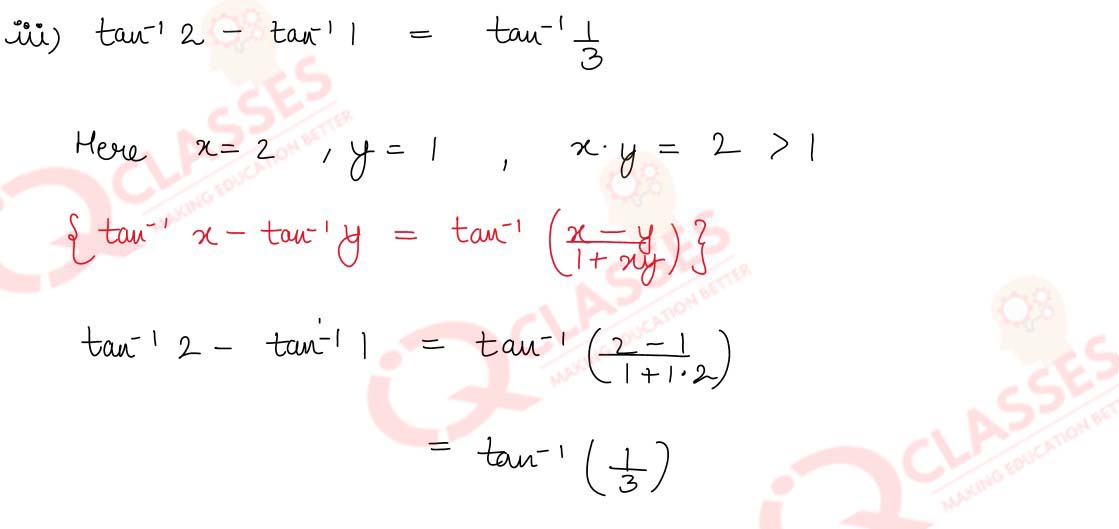 iii) tan⁻¹ 2 − tan⁻¹ 1 = tan⁻¹ 1/3
Here x = 2 , y = 1 , x·y = 2 > 1
{ tan⁻¹ x − tan⁻¹ y = tan⁻¹ (x − y / 1 + xy) }
tan⁻¹ 2 − tan⁻¹ 1 = tan⁻¹ (2 − 1 / 1 + 1·2)
= tan⁻¹ (1/3)
IQ CLASSES
MAKING EDUCATION BETTER
IQ CLASSES
MAKING EDUCATION BETTER
IQ CLASSES
MAKING EDUCATION BETTER